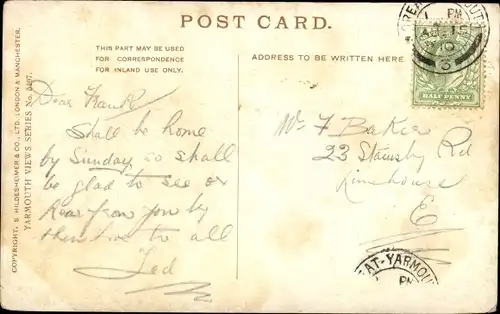 POST CARD.
THIS PART MAY BE USED
FOR CORRESPONDENCE
FOR INLAND USE ONLY.
ADDRESS TO BE WRITTEN HERE.
COPYRIGHT. S. HILDESHEIMER & CO., LTD. LONDON & MANCHESTER.
YARMOUTH VIEWS SERIES No.
Dear Frank
Shall be home
by Sunday, so shall
be glad to see or
hear from you by
then love to all
Ted
Mr F Baker
23 Stainsby Rd
Limehouse
E
HALF PENNY
GREAT-YARMOUTH
PM
EAT-YARMOU
PM